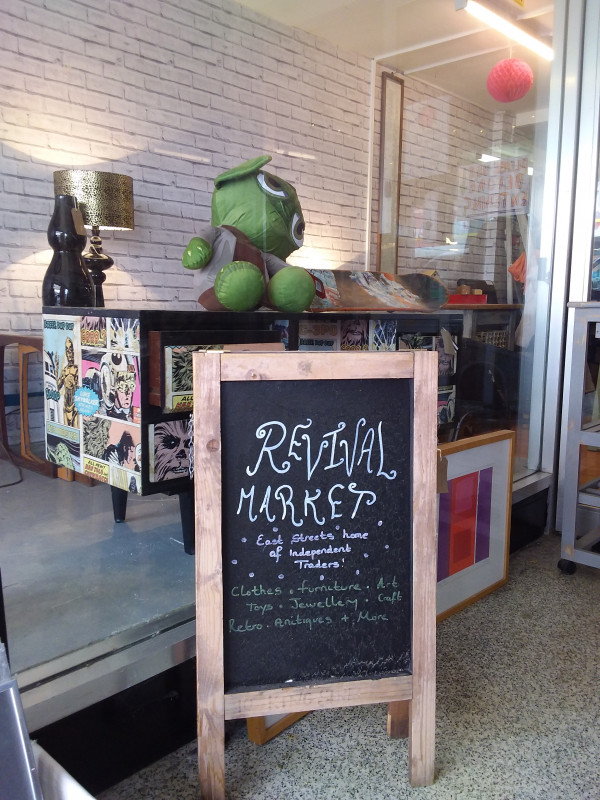 REVIVAL
MARKET
East Streets home
of Independent
Traders!
Clothes . furniture . Art
Toys . Jewellery . Craft
Retro . Anitiques + More